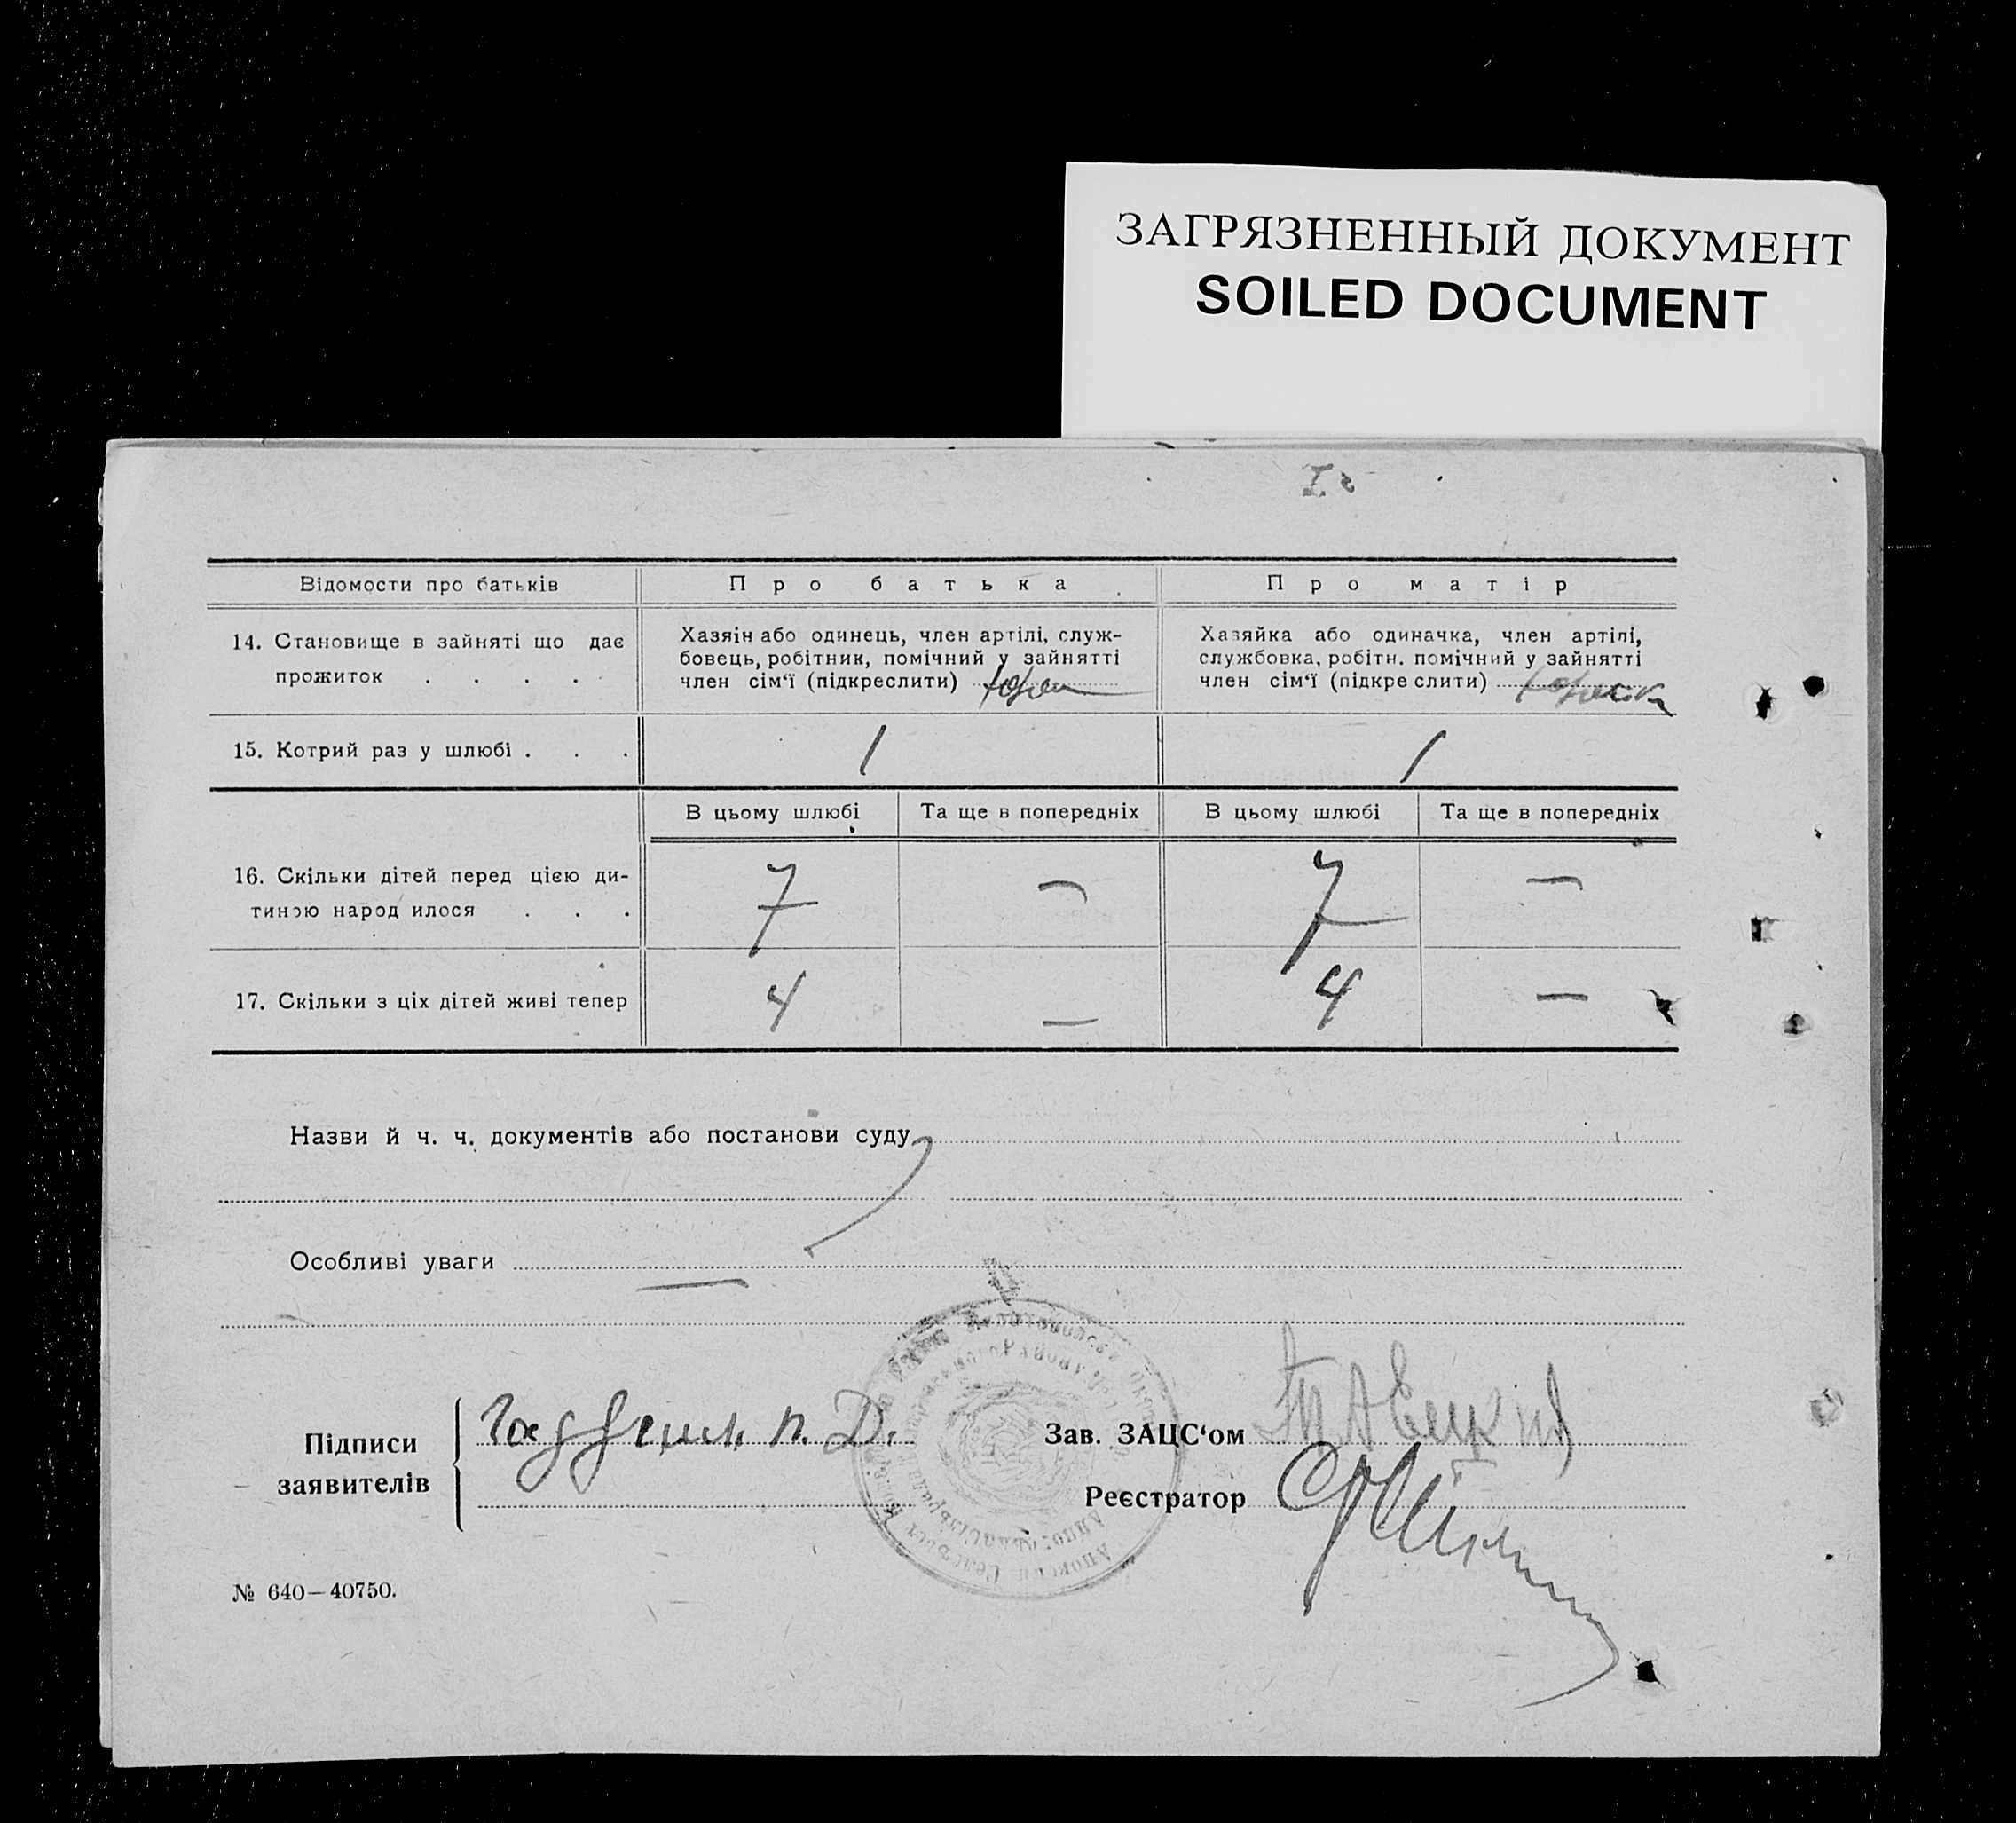 ЗАГРЯЗНЕННЫЙ ДОКУМЕНТ
SOILED DOCUMENT
Відомости про батьків
Про батька
Про матір
14. Становище в зайняті що дає
прожиток . . . .
Хазяін або одинець, член артілі, служ-
бовець, робітник, помічний у зайнятті
член сім‘ї (підкреслити)
Хазяйка або одиначка, член артілі,
службовка, робітн. помічний у зайнятті
член сім‘ї (підкре слити)
15. Котрий раз у шлюбі . . .
1
1
В цьому шлюбі
Та ще в попередніх
В цьому шлюбі
Та ще в попередніх
16. Скільки дітей перед цією ди-
тиною народ илося . . .
7
—
7
—
17. Скільки з ціх дітей живі тепер
4
—
4
—
Назви й ч. ч. документів або постанови суду
Особливі уваги —
Підписи
заявителів
П. Д.
Зав. ЗАЦС‘ом
Реєстратор
№ 640—40750.